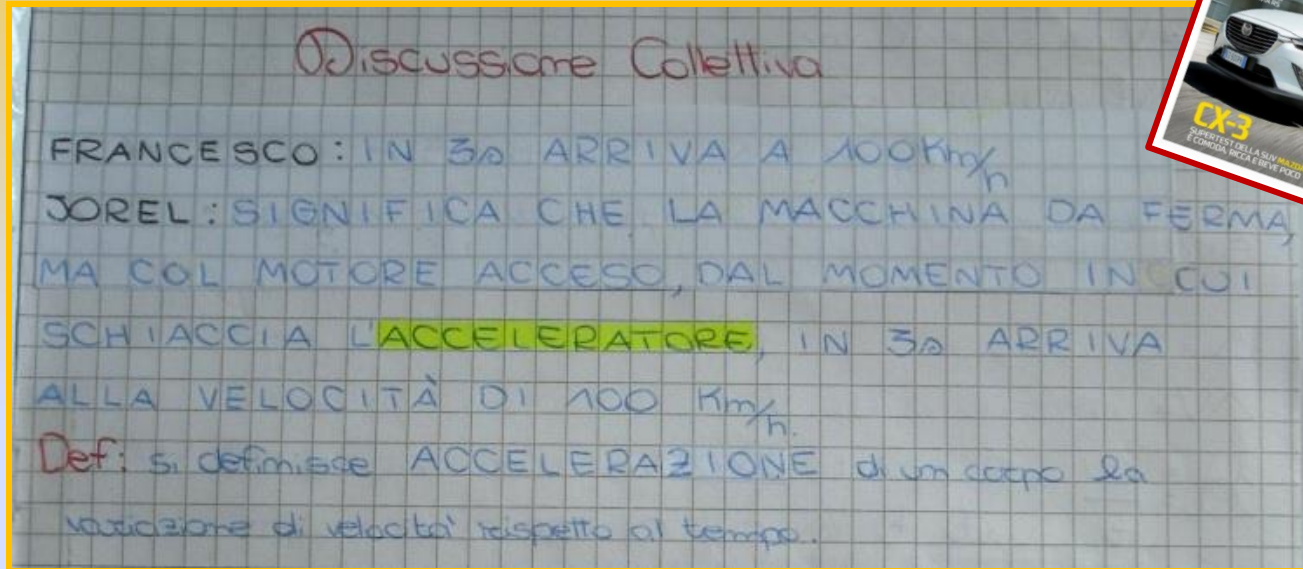 Discussione Collettiva
FRANCESCO: IN 3s ARRIVA A 100Km/h
JOREL: SIGNIFICA CHE LA MACCHINA DA FERMA,
MA COL MOTORE ACCESO, DAL MOMENTO IN CUI
SCHIACCIA L'ACCELERATORE, IN 3s ARRIVA
ALLA VELOCITÀ DI 100 Km/h.
Def: si definisce ACCELERAZIONE di un corpo la
variazione di velocita' rispetto al tempo.
CX-3
SUPERTEST DELLA SUV MAZDA
È COMODA, RICCA E BEVE POCO